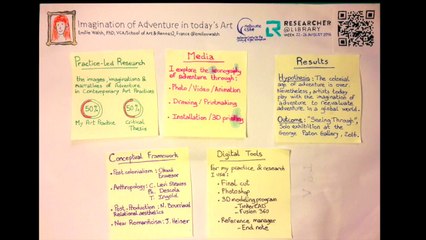 Imagination of Adventure in today's Art
Emilie Walsh, PhD, VCA/School of Art & Rennes2, France @emiliewalsh
RESEARCHER
@LIBRARY
Practice-Led Research
the images, imaginations &
narratives of Adventure
in Contemporary Art Practices
50%
50%
My Art Practice
Critical
Thesis
Media
I explore the iconography
of adventure through:
• Photo / Video / Animation
• Drawing / Printmaking
• Installation / 3D printing
Results
Hypothesis: The colonial
age of adventure is over.
Nevertheless, artists today
play with the imagination
of adventure to reevaluate
adventure in a global world.
Outcome: "Seeing Through",
Solo exhibition at the
George Paton Gallery, 2016.
Conceptual Framework
- Post colonialism:
- Anthropology: C. Levi Strauss
Ph. Descola
T. Ingold
- Post-Production: N. Bourriaud
Relational aesthetics
- New Romanticism: J. Heiser
Digital Tools
For my practice & research
I use:
• Final cut
• Photoshop
• 3D modeling program
- TinkerCAD
- Fusion 360
• Reference manager
- End note